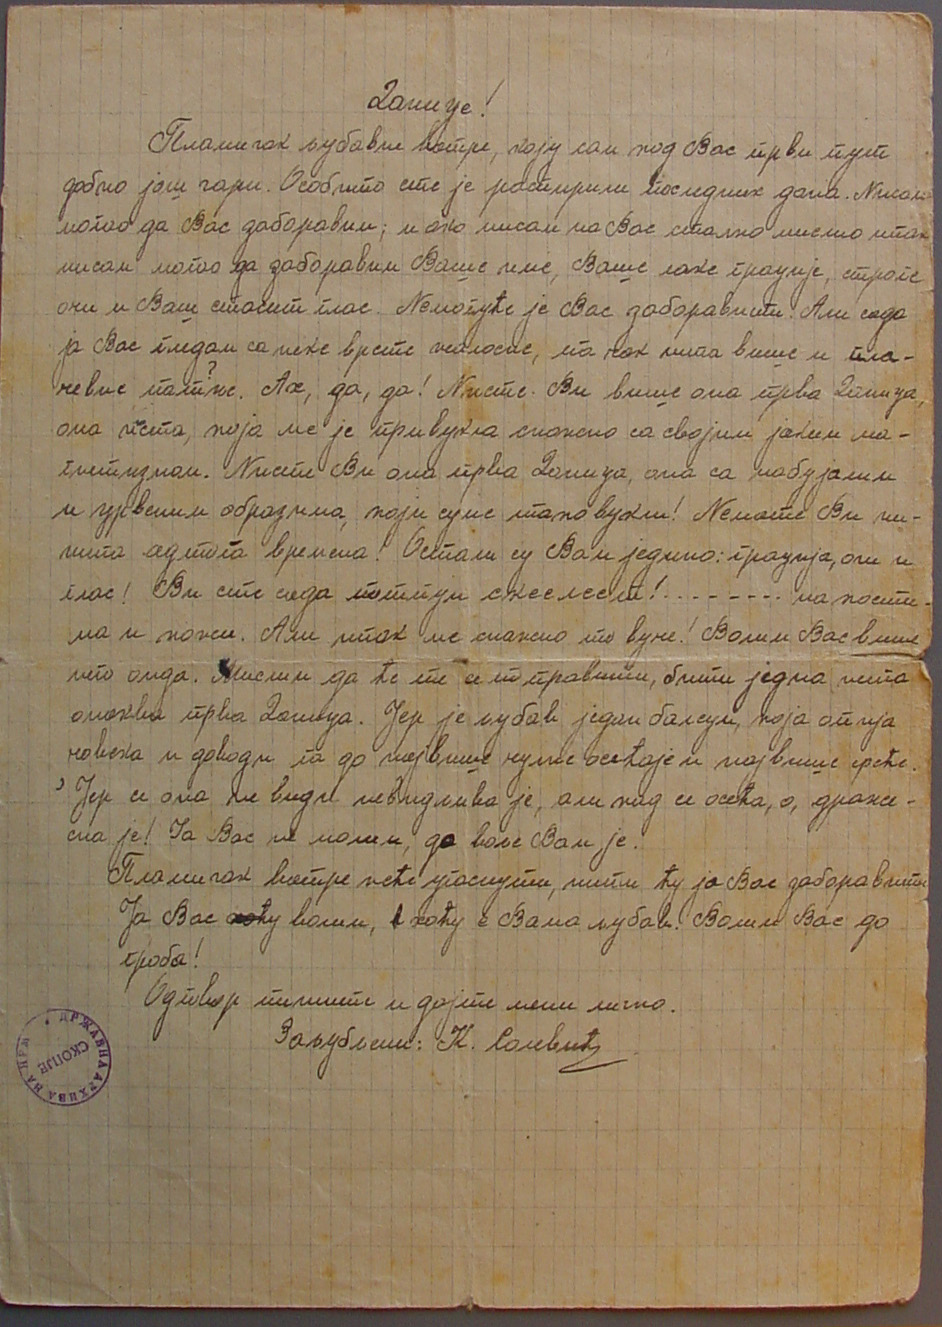 Данице!
Пламичак љубавне ватре, коју сам код Вас први пут
добио још гори. Особито сте је распирили последњих дана. Нисам
могао да Вас заборавим; и ако нисам на Вас стално мислио ипак
нисам могао да заборавим Ваше име, Ваше лаке трацује,
очи и Ваш глас. Немогуће је Вас заборавити. Али сада
ја Вас гледам са неке врсте жалосне, па чак шта више и пла-
чевне патње. Ах, да, да! Нисте Ви више она прва Даница,
она иста, која ме је привукла снажно са својим јаким ма-
гнетизмом. Нисте Ви она прва Даница, она са набујалим
и црвеним образима, који су ме тако вукли! Немате Ви ни-
шта од тога времена! Остали су Вам једино: трацуја, очи и
глас! Ви сте сада потпуни скеелест! - - - - - - - - на кости-
ма и кожи. Али ипак ме снажно то вуче! Волим Вас више
него онда. Мислим да ће те се поправити, бити једна иста
онаква прва Даница. Јер је љубав један балсум, која опија
човека и доводи га до највише чулне осећаје и највише среће.
Јер се она не види невидљива је, али кад се осећа, о, драже-
сна је! Ја Вас не молим, да воље Вам је.
Пламичак ватре неће угаснути, нити ћу ја Вас заборавити
Ја Вас волим, хоћу с Вама љубав! Волим Вас до
гроба!
Одговор пишите и дајте мени лично.
Заљубљени: К.
ДРЖАВНА АРХИВА НА НРМ
СКОПЈЕ